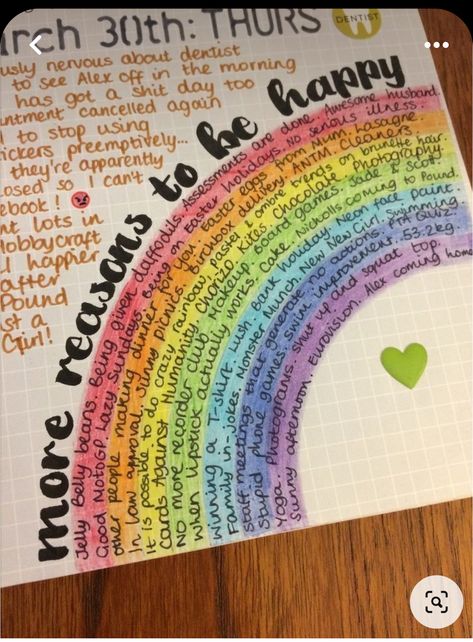 arch 30th: THURS
DENTIST
usly nervous about dentist
to see Alex off in the morning
has got a shit day too
intment cancelled again
to stop using
ickers preemptively...
they're apparently
losed so I can't
ebook!
nt lots in
Hobbycraft
l happier
after
Pound
st a
Girl!
more reasons to be happy
Jelly Belly beans. Being given daffodils. Assessments are done. Awesome husband.
Good MotoGP. Lazy Sundays. Being on Easter holidays. No serious illness.
other people making dinner for you. Easter eggs from Mum. Lasagne.
In law approval. Sunny picnics. Birchbox delivery. ANTM. Cleaners.
It is possible to do crazy rainbow pastel ombre hair on brunette hair.
Cards Against Humanity. Chorizo. Kites. Chocolate. Photography.
No more recade club. Makeup. Board games. Jade + Scott
when lipstick actually works. Cake. Nicholls coming to Pound.
Winning a T-shirt. Lush. Bank holiday. Neon face paint
Family in-jokes. Monster Munch. New New Girl. Swimming
staff meetings that generate no actions. PTA Quiz
Stupid phone games. Swim improvement. 53.2kg.
Yoga. Photograms. Shut up and squat top
Sunny afternoon. Eurovision. Alex coming home